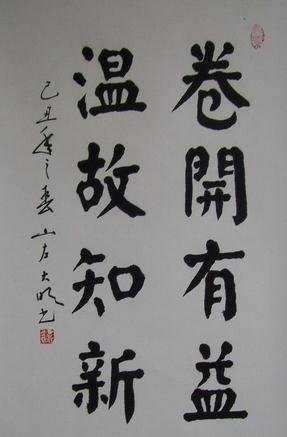 卷開有益
温故知新
己丑年之春山左大明书